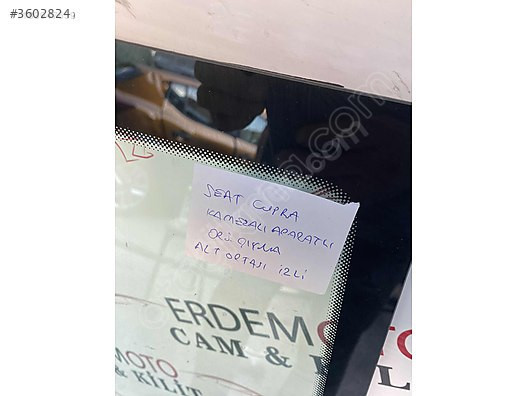 #3602824
SEAT CUPRA
KAMERALI APARATLI
ORJ ÇIKMA
ALT ORTASI İZLİ
ERDEMOTO
CAM & KİLİT
MOTO
& KİLİT